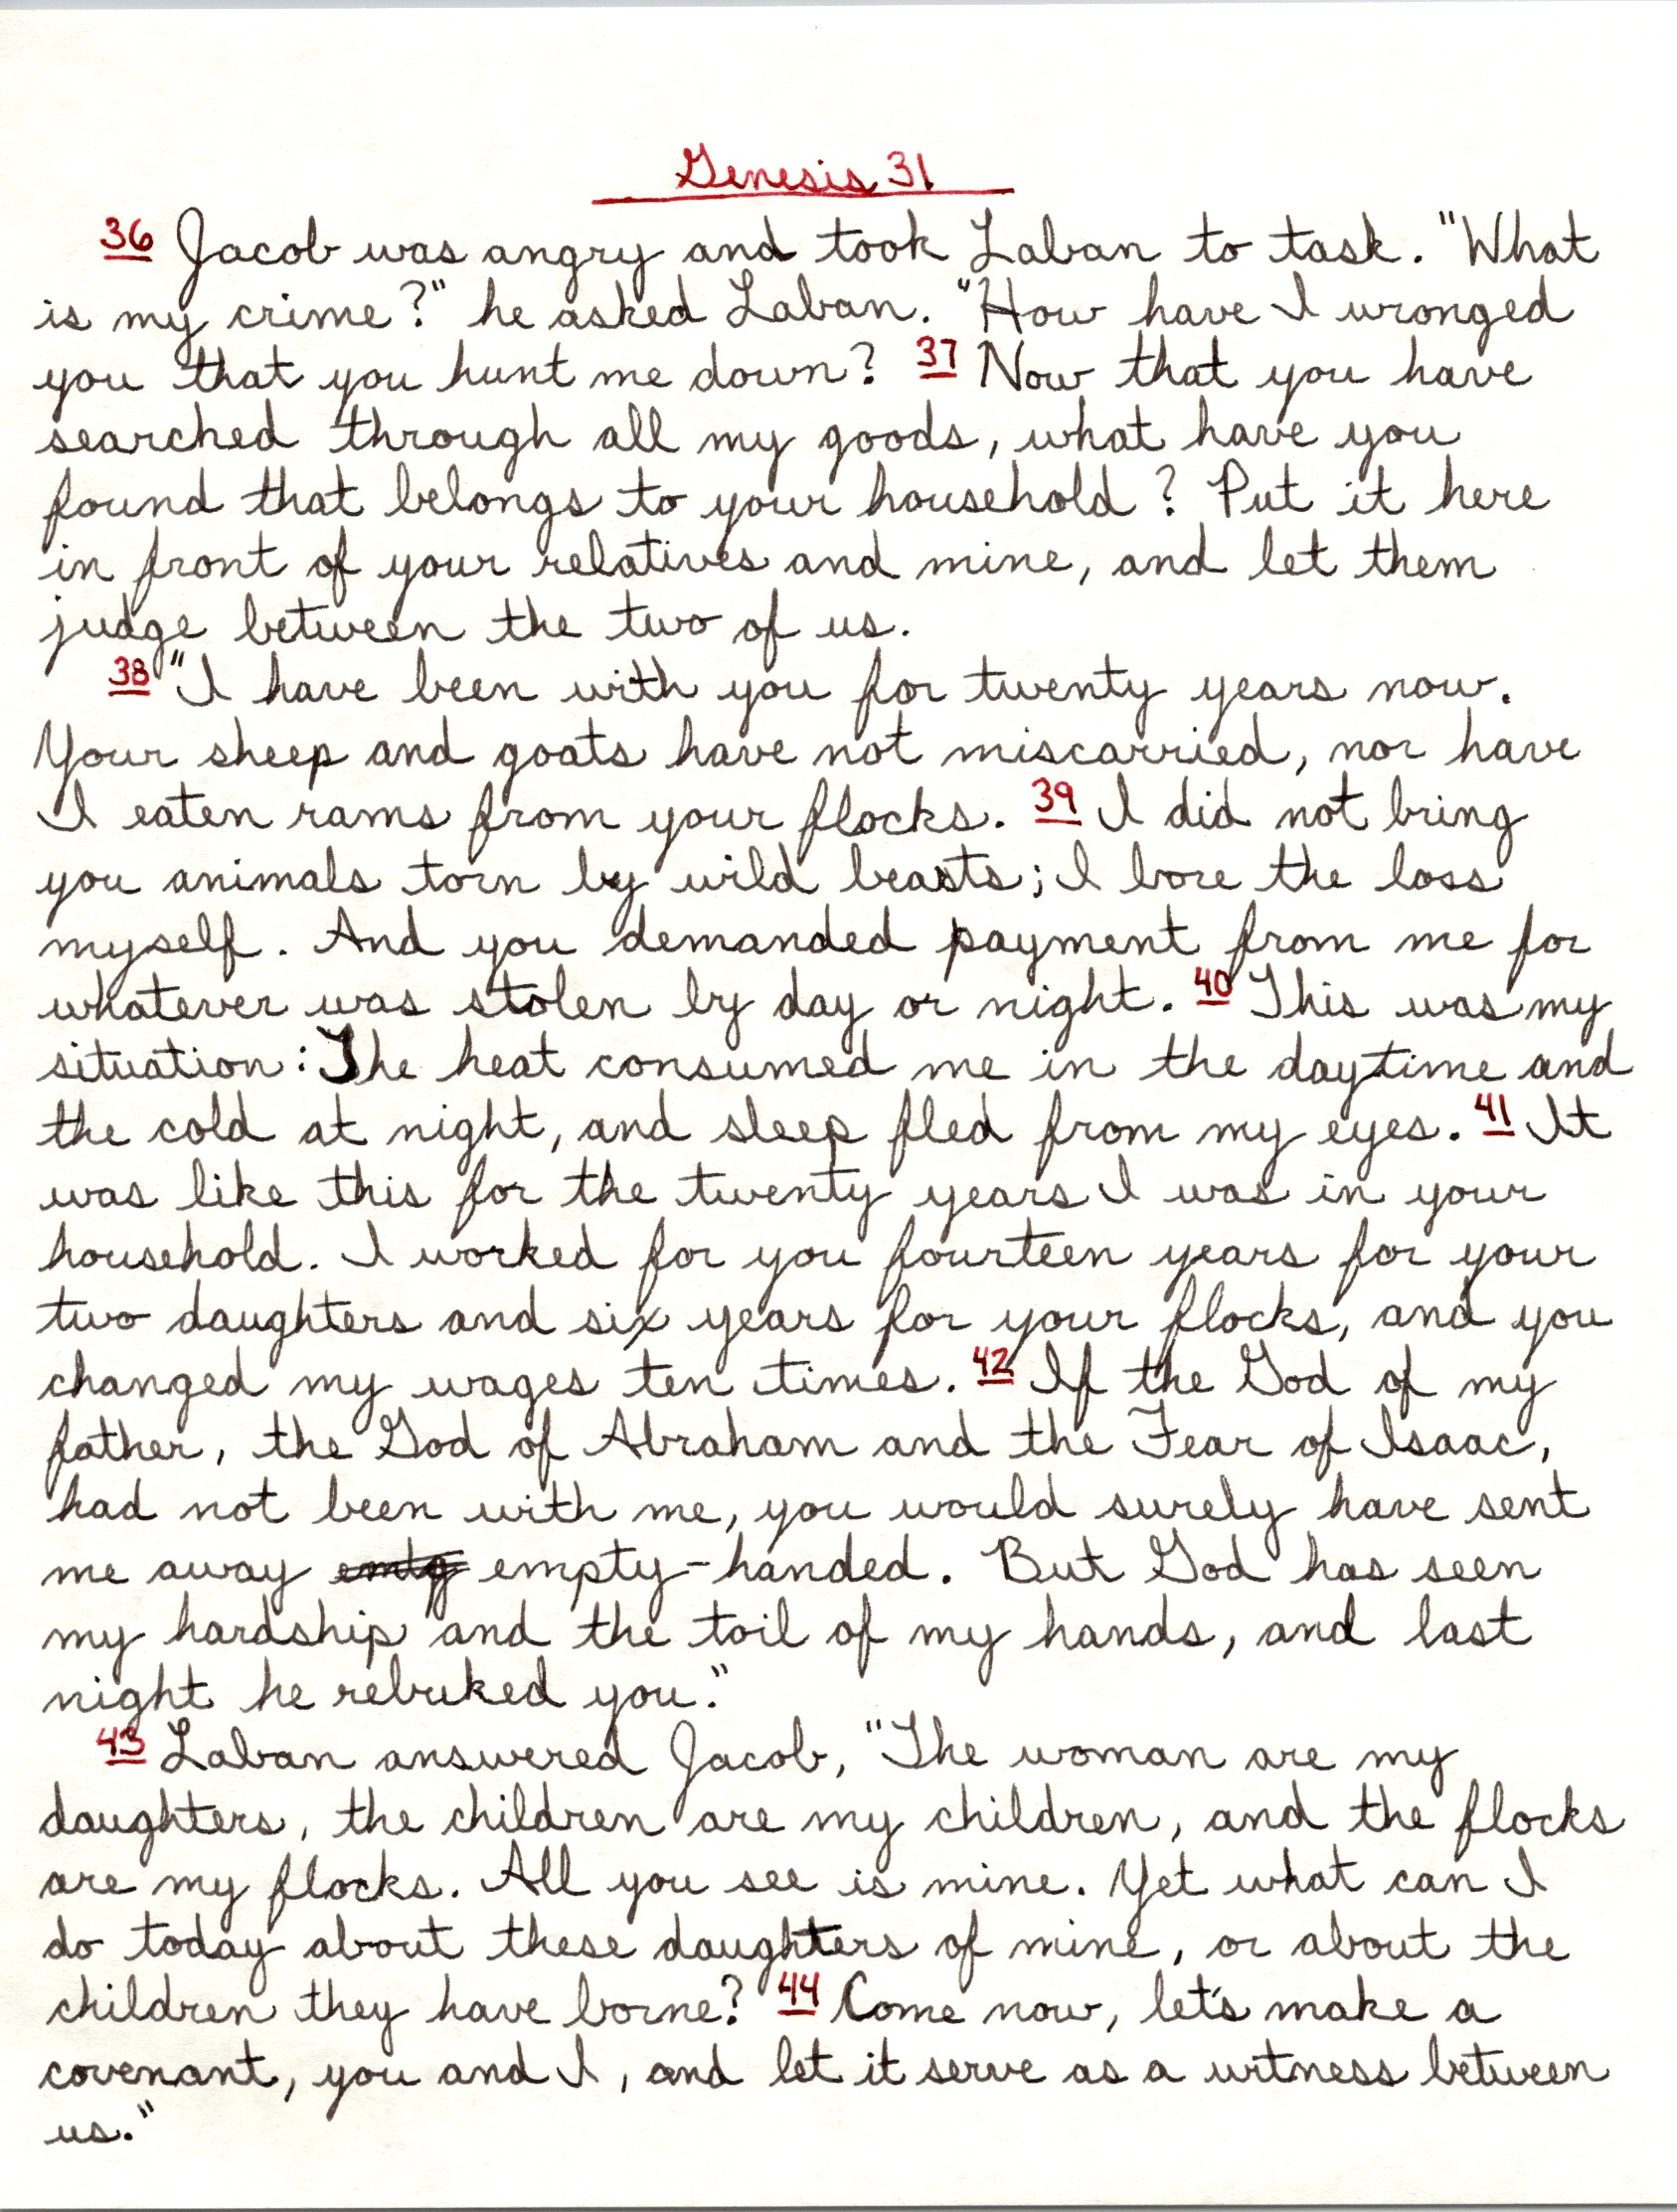 Genesis 31
36 Jacob was angry and took Laban to task. "What
is my crime?" he asked Laban. "How have I wronged
you that you hunt me down? 37 Now that you have
searched through all my goods, what have you
found that belongs to your household? Put it here
in front of your relatives and mine, and let them
judge between the two of us.
38 "I have been with you for twenty years now.
Your sheep and goats have not miscarried, nor have
I eaten rams from your flocks. 39 I did not bring
you animals torn by wild beasts; I bore the loss
myself. And you demanded payment from me for
whatever was stolen by day or night. 40 This was my
situation: The heat consumed me in the daytime and
the cold at night, and sleep fled from my eyes. 41 It
was like this for the twenty years I was in your
household. I worked for you fourteen years for your
two daughters and six years for your flocks, and you
changed my wages ten times. 42 If the God of my
father, the God of Abraham and the Fear of Isaac,
had not been with me, you would surely have sent
me away empty-handed. But God has seen
my hardship and the toil of my hands, and last
night he rebuked you."
43 Laban answered Jacob, "The woman are my
daughters, the children are my children, and the flocks
are my flocks. All you see is mine. Yet what can I
do today about these daughters of mine, or about the
children they have borne? 44 Come now, let's make a
covenant, you and I, and let it serve as a witness between
us."